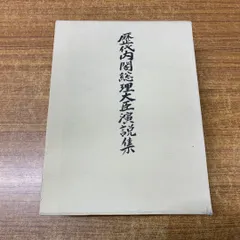 歴代内閣総理大臣演説集